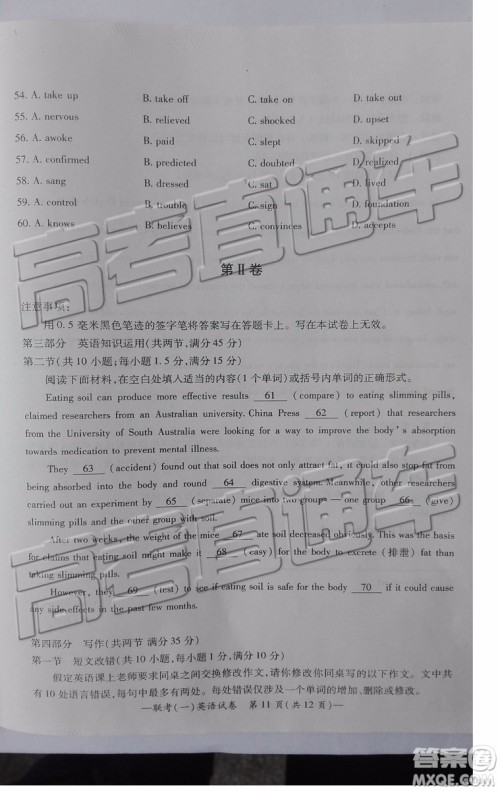 54. A. take up B. take off C. take on D. take out
55. A. nervous B. relieved C. shocked D. upset
56. A. awoke B. paid C. slept D. skipped
57. A. confirmed B. predicted C. doubted D. realized
58. A. sang B. dressed C. sat D. lived
59. A. control B. trouble C. sign D. foundation
60. A. knows B. believes C. convinces D. accepts
第Ⅱ卷
注意事项:
用0.5毫米黑色笔迹的签字笔将答案写在答题卡上。写在本试卷上无效。
第三部分 英语知识运用(共两节,满分45分)
第二节(共10小题;每小题1.5分,满分15分)
阅读下面材料,在空白处填入适当的内容(1个单词)或括号内单词的正确形式。
Eating soil can produce more effective results 61 (compare) to eating slimming pills,
claimed researchers from an Australian university. China Press 62 (report) that researchers
from the University of South Australia were looking for a way to improve the body's absorption
towards medication to prevent mental illness.
They 63 (accident) found out that soil does not only attract fat, it could also stop fat from
being absorbed into the body and round 64 digestive system. Meanwhile, other researchers
carried out an experiment by 65 (separate) mice into two groups — one group 66 (give)
slimming pills and the other group with soil.
After two weeks, the weight of the mice 67 ate soil decreased obviously. This was the basis
for claims that eating soil might make it 68 (easy) for the body to excrete (排泄) fat than
taking slimming pills.
However, they 69 (test) to see if eating soil is safe for the body 70 if it could cause
any side effects in the past few months.
第四部分 写作(共两节 满分35分)
第一节 短文改错(共10小题,每小题1分,满分10分)
假定英语课上老师要求同桌之间交换修改作文,请你修改你同桌写的以下作文。文中共
有10处语言错误,每句中最多有两处。每处错误仅涉及一个单词的增加、删除或修改。
—联考(一)英语试卷 第11页(共12页)—
高考直通车
高考直通车
答案圈
MXQE.COM